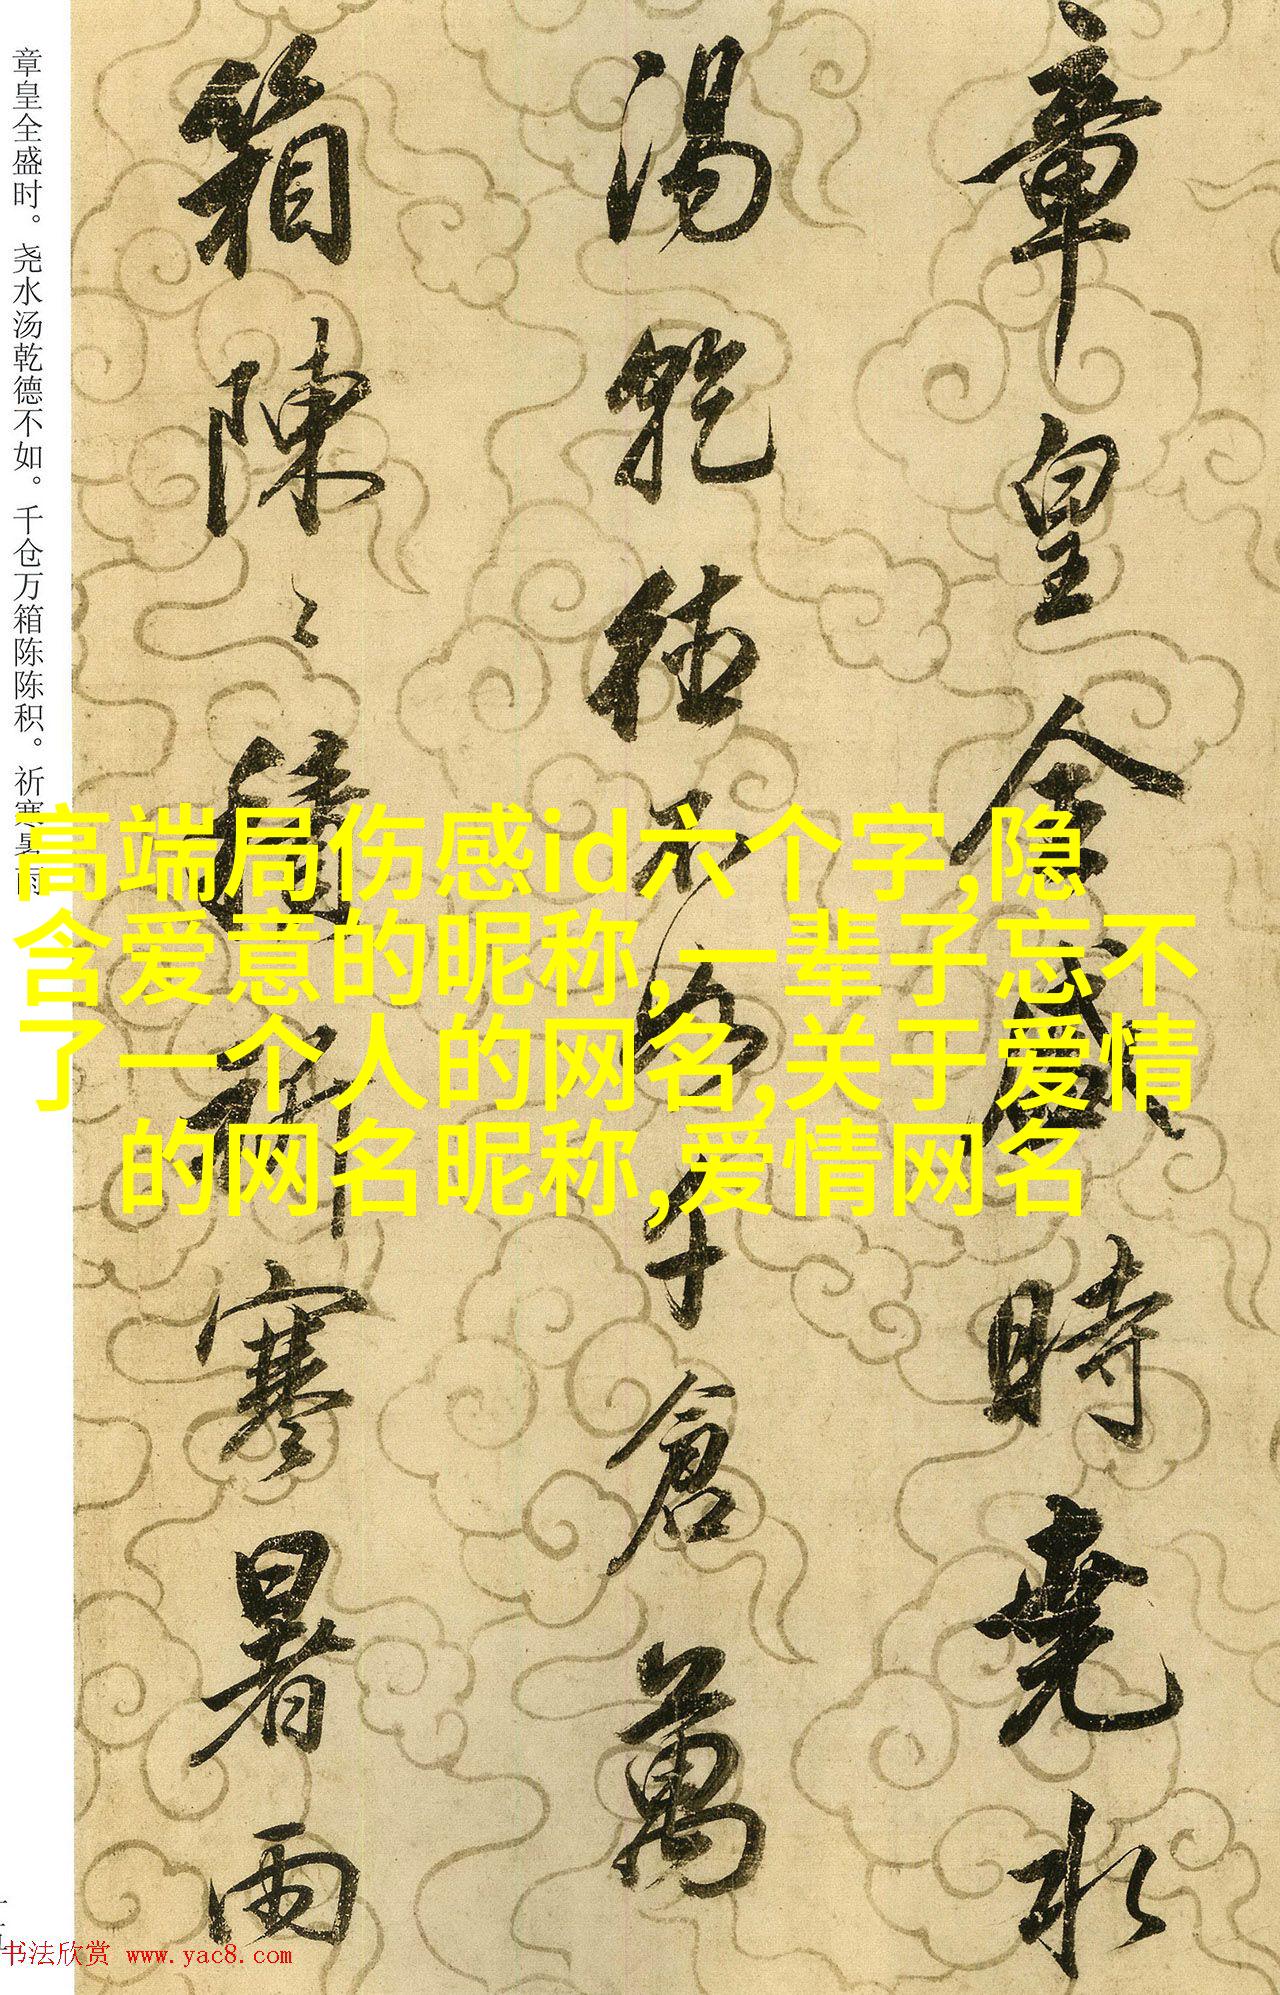 章皇全盛时。尧水汤乾德不如。千仓万箱陈陈积。祈寒暑雨
章皇全盛時堯水
湯乾德不如千倉萬
箱陳〻積祈寒暑雨
高端局伤感id六个字,隐
含爱意的昵称,一辈子忘不
了一个人的网名,关于爱情
的网名昵称,爱情网名
书法欣赏 www.yac8.com